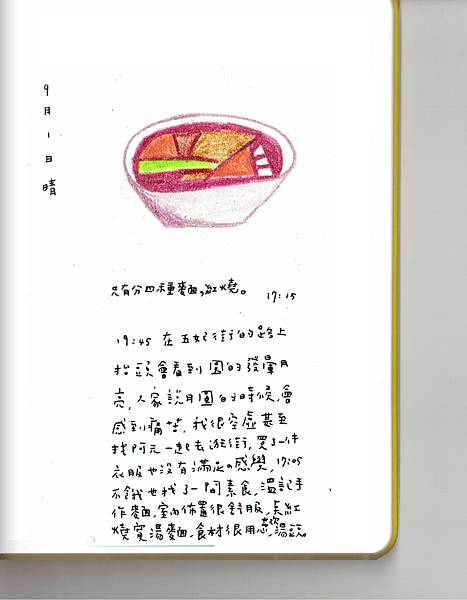 9月1日晴
只有分四種麵,紅燒。 17:15
19:45 在五妃街的路上
抬頭會看到圓的發暈月
亮,人家說月圓的時候,會
感到痛苦,我很空虛甚至
找阿元一起去逛街,買了一件
衣服也没有滿足的感覺,17:05
不餓也找了一間素食,溫記手
作麵,室內佈置很舒服,點紅
燒寬湯麵,食材很用心,湯